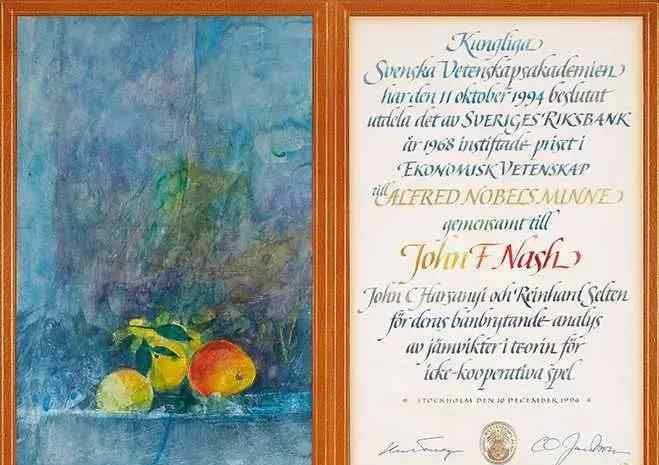 Kungliga
Svenska Vetenskapsakademien
har den 11 oktober 1994 beslutat
utdela det av SVERIGES RIKSBANK
år 1968 instiftade priset i
EKONOMISK VETENSKAP
till ALFRED NOBELS MINNE
gemensamt till
John F Nash
John C Harsanyi och Reinhard Selten
för deras banbrytande analys
av jämvikter i teorin för
icke-kooperativa spel
STOCKHOLM DEN 10 DECEMBER 1994